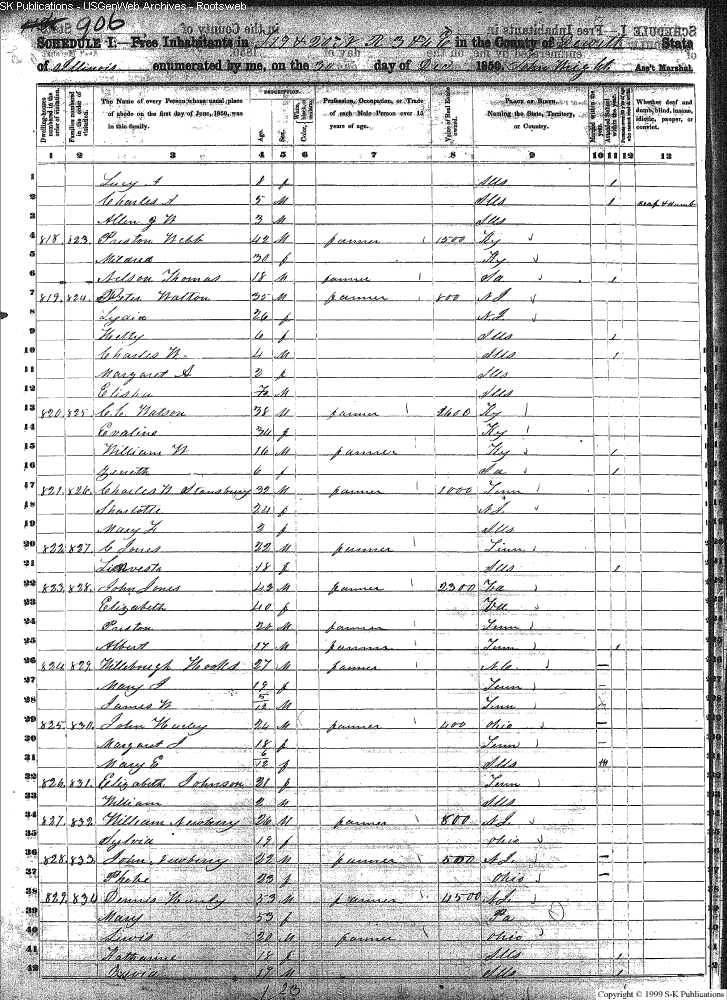 SK Publications - USGenWeb Archives - Rootsweb
906
SCHEDULE I.—Free Inhabitants in T 19 & 20 N R 3 & 4 E in the County of Dewitt State
of Illinois enumerated by me, on the 30 day of Dec 1850. John Wright Ass't Marshal.
Dwelling-houses numbered in the order of visitation. Families numbered in the order of visitation. The Name of every Person whose usual place of abode on the first day of June, 1850, was in this family. DESCRIPTION. Age. Sex. Color, White, black, or mulatto. Profession, Occupation, or Trade of each Male Person over 15 years of age. Value of Real Estate owned. PLACE OF BIRTH. Naming the State, Territory, or Country. Married within the year. Attended School within the year. Whether deaf and dumb, blind, insane, idiotic, pauper, or convict.
1 2 3 4 5 6 7 8 9 10 11 12 13
1 Lucy A 8 f Ills 1
2 Charles A 5 M Ills 1 deaf & dumb
3 Allen J W 3 M Ills
4 818 823 Preston Webb 42 M farmer 1500 Ky
5 Mildred 30 f Ky
6 Nelson Thomas 18 M farmer Ia 1
7 819 824 Peter Walton 35 M farmer 800 N.J
8 Lydia 26 f N.J
9 Hetty 6 f Ills 1
10 Charles W. 4 M Ills 1
11 Margaret A 2 f Ills
12 Elisha M Ills
13 820 825 C.C. Watson 38 M farmer 2600 Ky
14 Evaline 34 f Ky
15 William W 16 M farmer Ky 1
16 6 f Ia 1
17 821 826 Charles W Stansbury 32 M farmer 1000 Tenn
18 Sharlotte 24 f N.J
19 Mary F 2 f Ills
20 822 827 C Jones 22 M farmer Tenn
21 18 f Ills 1
22 823 828 John Jones 42 M farmer 2300 Va
23 Elizabeth 40 f Va
24 Preston 20 M farmer Tenn
25 Albert 17 M farmer Tenn 1
26 824 829 Hooks 27 M farmer N.C.
27 Mary J 19 f Tenn
28 James W 5/12 M Tenn
29 825 830 John Hurley 24 M farmer 400 Ohio
30 Margaret J 18 f Tenn
31 Mary E 6/12 f Ills
32 826 831 Elizabeth Johnson 21 f Tenn
33 William 2 M Ills
34 827 832 William Newberry 26 M farmer 800 N.J
35 Sylvia 19 f Ohio
36 828 833 John Newberry 22 M farmer 500 N.J.
37 Phebe 23 f Ohio
38 829 834 Dennis 53 M farmer 4500 N.J
39 Mary 53 f Pa
40 Lewis 20 M farmer Ohio
41 Katharine 18 f Ills 1
42 David 17 M Ills 1
23
Copyright © 1999 S-K Publications